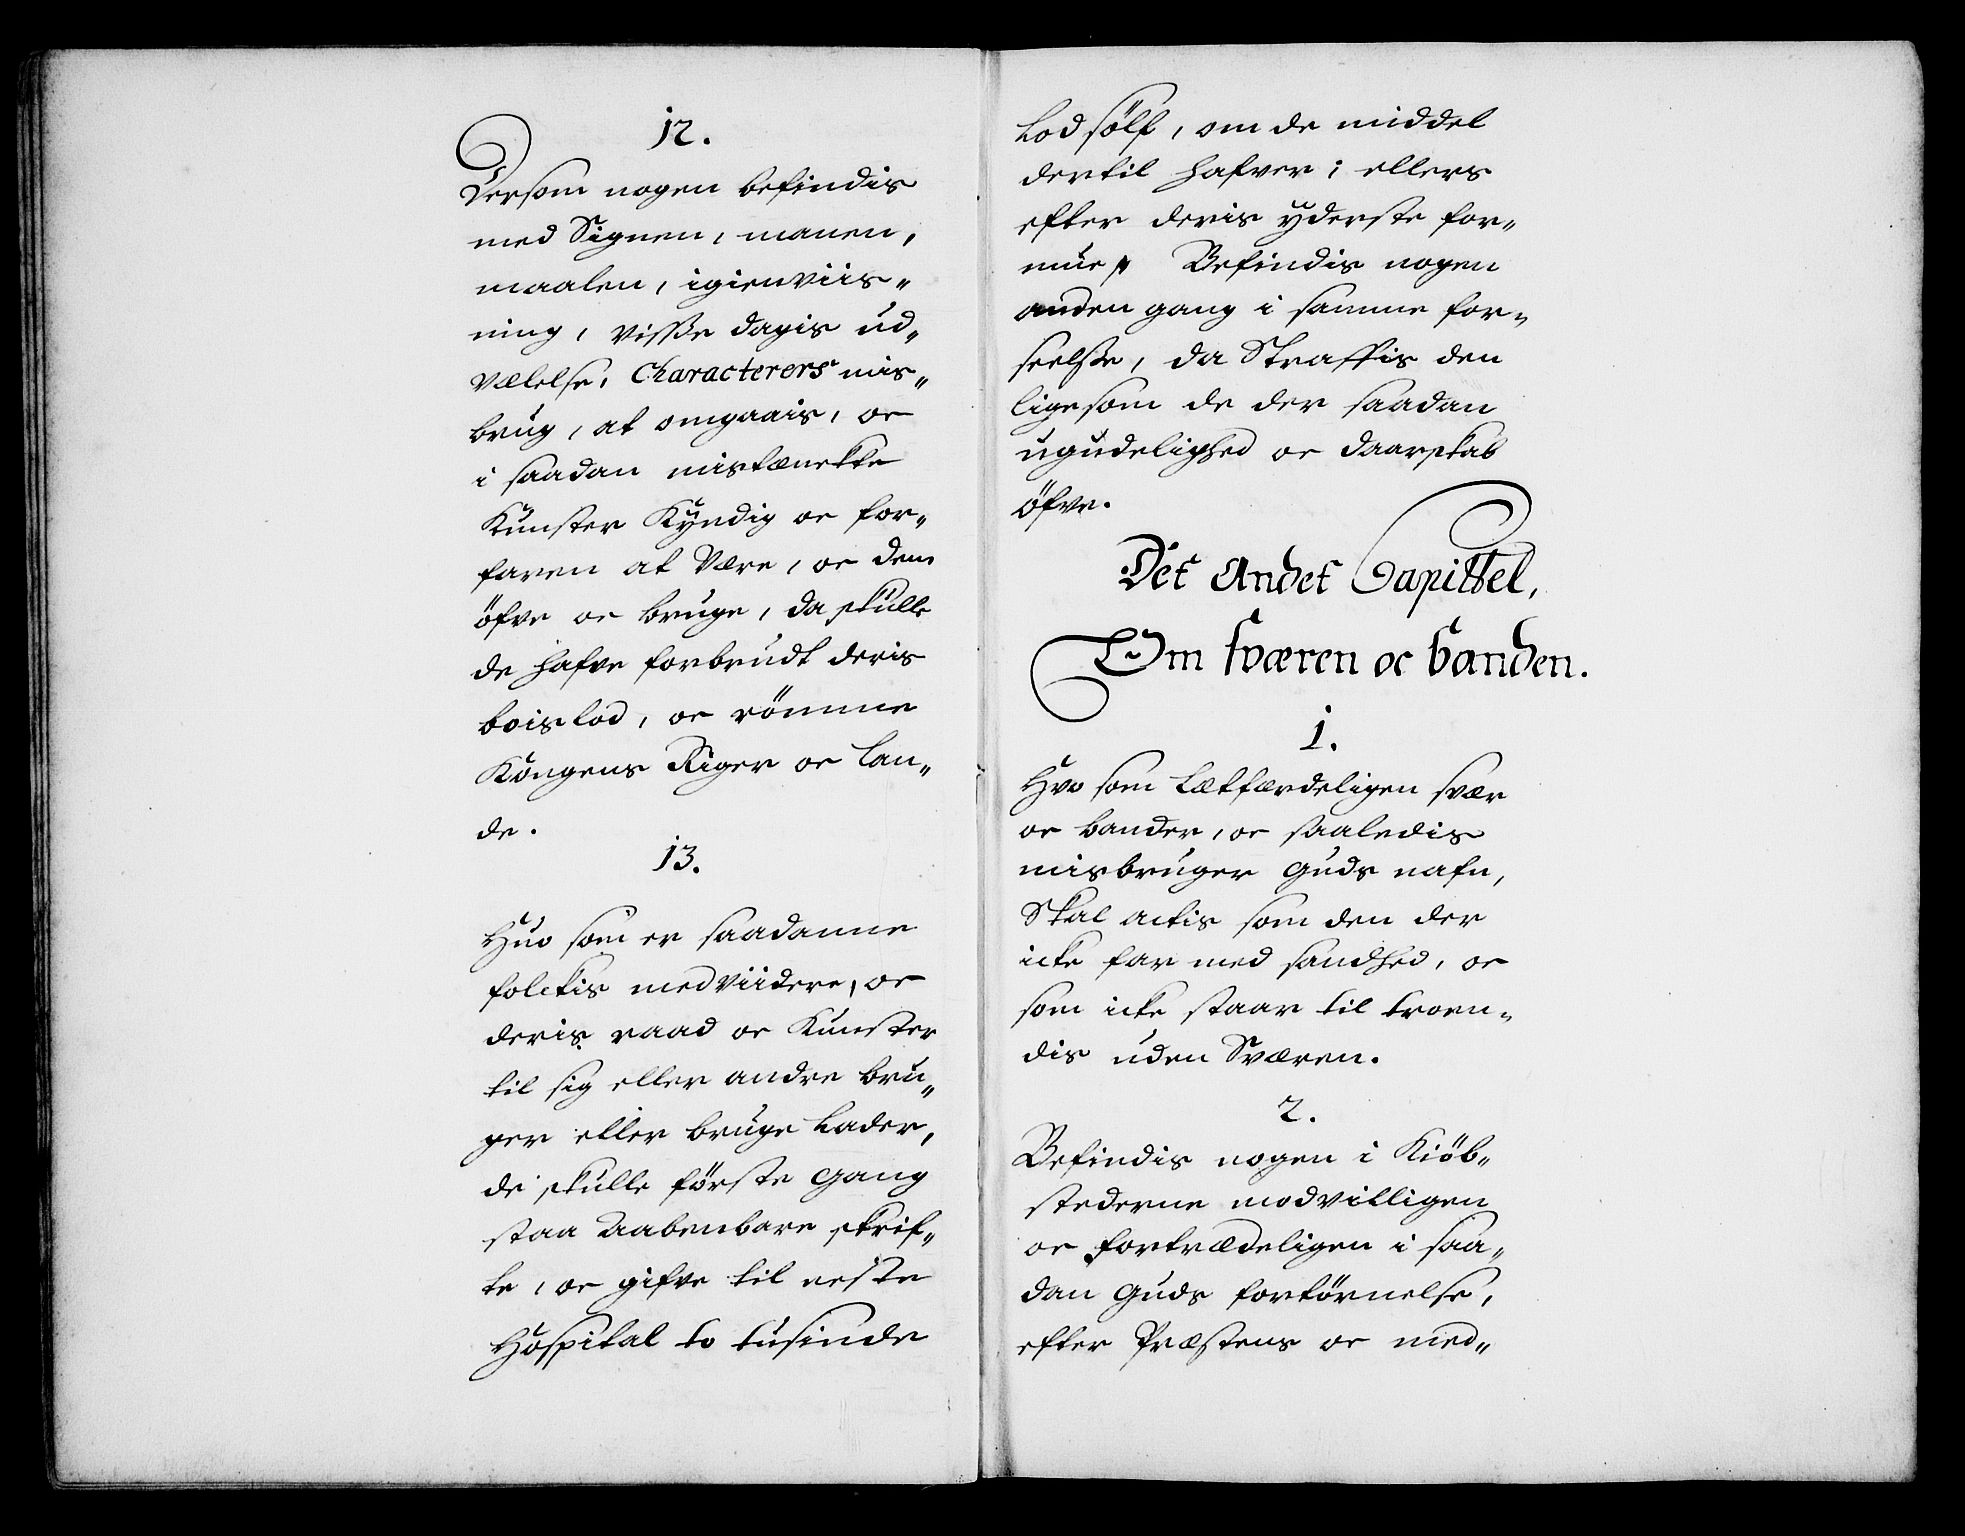 12.
Dersom nogen befindis
med Signen, manen,
maalen, igienviis„
ning, visse dagis ud„
vælelse, Characterers mis„
brug, at omgaais, oc
i saadan mistænckte
Kunster Kyndig oc for„
faren at være, oc dem
öfve oc bruge, da skulle
de hafve forbrudt deris
boislod, oc römme
Kongens Riger oc lan„
de.
13.
Huo som er saadanne
folckis medviidere, oc
deris raad oc Kunster
til sig eller andre bru„
ger eller bruge lader,
de skulle förste Gang
staa Aabenbare skrif„
te, oc gifve til neste
Hospital to tusinde
Lod sölf, om de middel
dertil hafver; ellers
efter deris yderste for„
mue, Befindis nogen
anden gang i samme for„
seelsse, da Straffis den
lige som de der saadan
ugudelighed oc daarskab
öfve.
Det Andet Capittel,
Om sværen oc banden.
1.
Hvo som Letfærdeligen svær
oc bander, oc saaledis
misbruger Guds nafn,
Skal actis som den der
icke far med sandhed, oc
som icke staar til troen„
dis uden Sværen.
2.
Befindis nogen i Kiöb„
stederne modvilligen
oc fortrædeligen i saa„
dan Guds fortörnelse,
efter Præstens oc med„